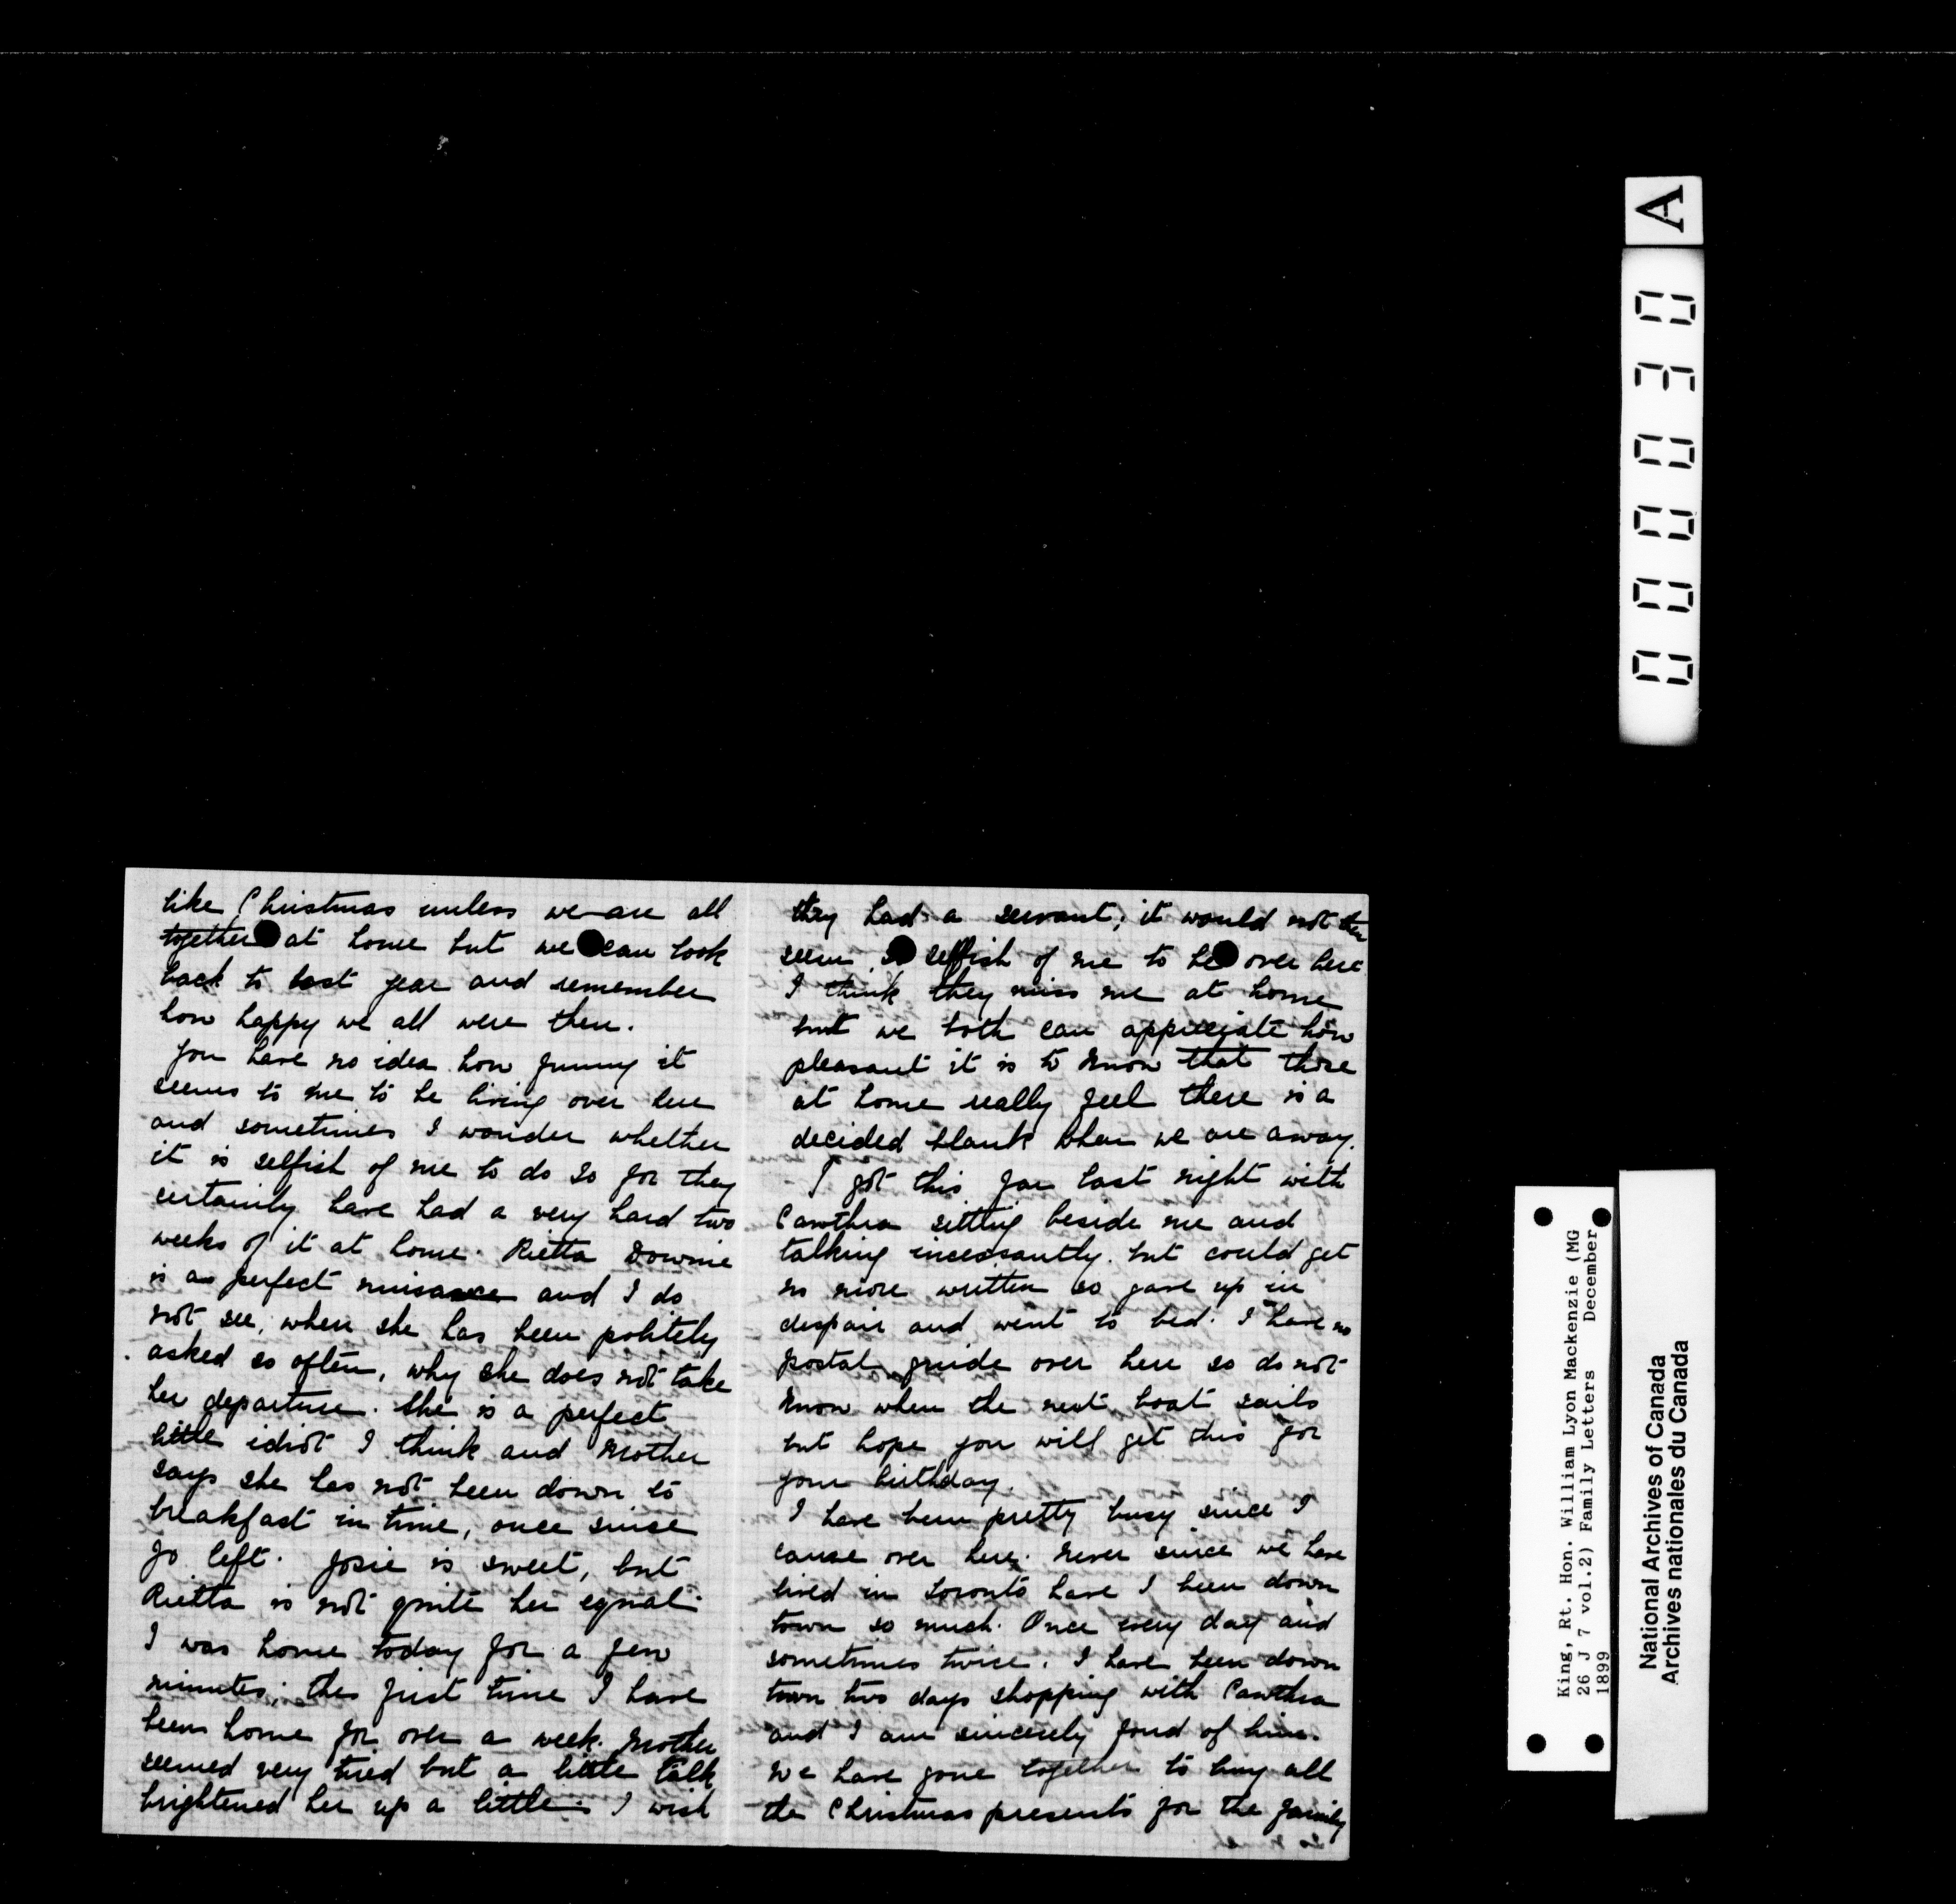 like Christmas unless we are all
together at home but we can look
back to last year and remember
how happy we all were then.
You have no idea how funny it
seems to me to be living over here
and sometimes I wonder whether
it is selfish of me to do so for they
certainly have had a very hard two
weeks of it at home. Rietta Downie
is a perfect nuisance and I do
not see, when she has been politely
asked so often, why she does not take
her departure. She is a perfect
little idiot I think and Mother
says she has not been down to
breakfast in time, once since
Jo left. Josie is sweet, but
Rietta is not quite her equal.
I was home today for a few
minutes; the first time I have
been home for over a week. Mother
seemed very tired but a little talk
brightened her up a little. I wish
they had a servant; it would not then
seem so selfish of me to be over here
I think they miss me at home
but we both can appreciate how
pleasant it is to know that those
at home really feel there is a
decided blank when we are away.
I got this far last night with
Cawthra sitting beside me and
talking incessantly. but could get
no more written so gave up in
despair and went to bed. I have no
postal guide over here so do not
know when the next boat sails
but hope you will get this for
your birthday.
I have been pretty busy since I
came over here. Never since we have
lived in Toronto have I been down
town so much. Once every day and
sometimes twice. I have been down
town two days shopping with Cawthra
and I am sincerely fond of him.
We have gone together to buy all
the Christmas presents for the family
A
000030
King, Rt. Hon. William Lyon Mackenzie (MG
26 J 7 vol.2) Family Letters December
1899
National Archives of Canada
Archives nationales du Canada